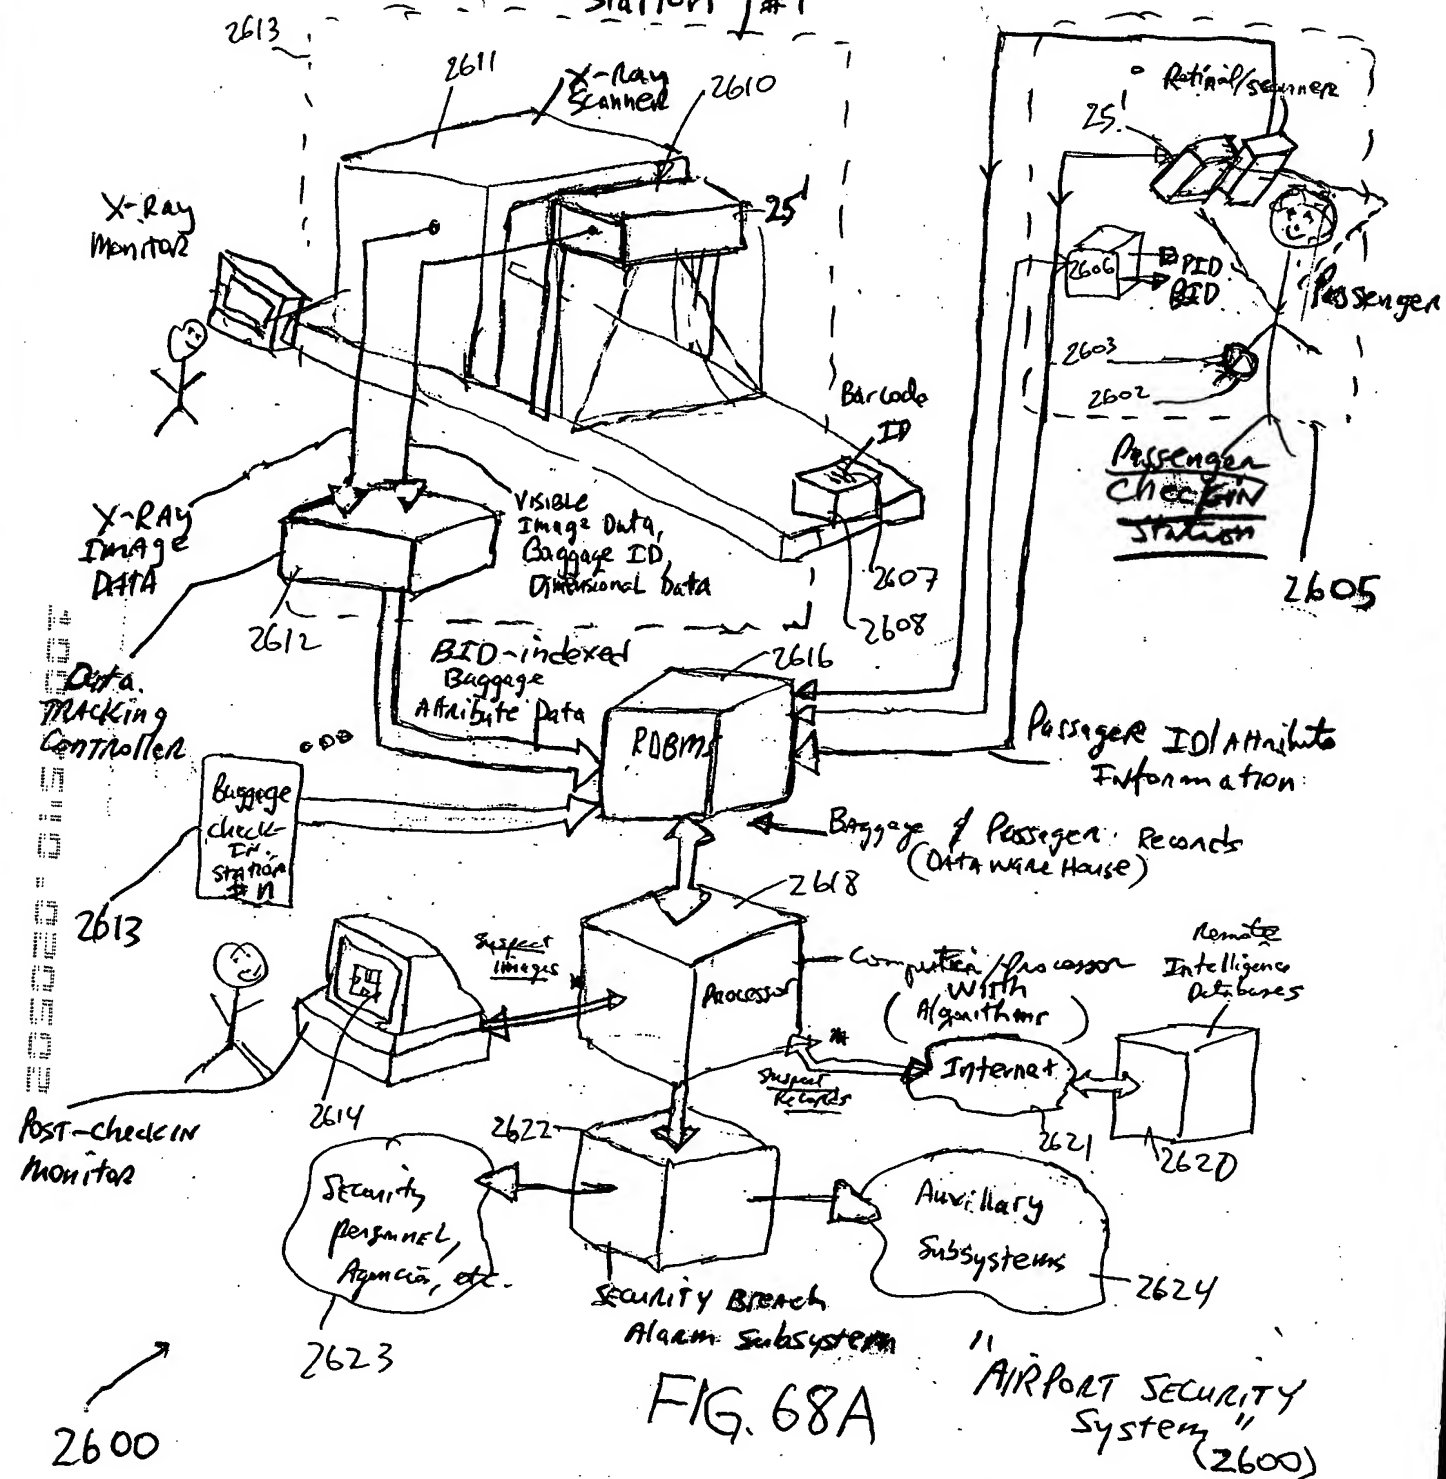 Station #1
2613
2611
X-Ray
Scanner
2610
25'
X-Ray
Monitor
Retinal/scanner
25'
2606
PID
BID
Passenger
2603
2602
Passenger
Check IN
Station
2605
Barcode
ID
2607
2608
X-RAY
IMAGE
DATA
VISIBLE
Image Data,
Baggage ID,
Dimensional Data
2612
Data
TRACKING
CONTROLLER
BID-indexed
Baggage
Attribute Data
2616
RDBMS
Passager ID/Attribute
Information
Baggage
Check-
IN
Station
#n
2613
Baggage & Passager Records
(DATA WARE HOUSE)
2618
Suspect
Images
PROCESSOR
Computer/Processor
WITH
(Algorithms)
Remote
Intelligence
Databases
Internet
Suspect
Records
2621
2620
2614
POST-CHECKIN
Monitor
2622
Security
personnel,
Agencies, etc.
2623
Auxillary
Subsystems
2624
SECURITY Breach
Alarm Subsystem
2600
FIG. 68A
"AIRPORT SECURITY
System"
(2600)